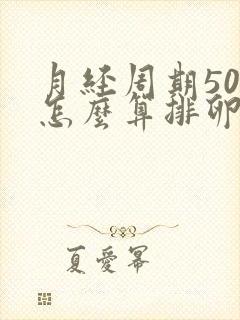 月经周期50
怎麼算排卵
夏愛冪